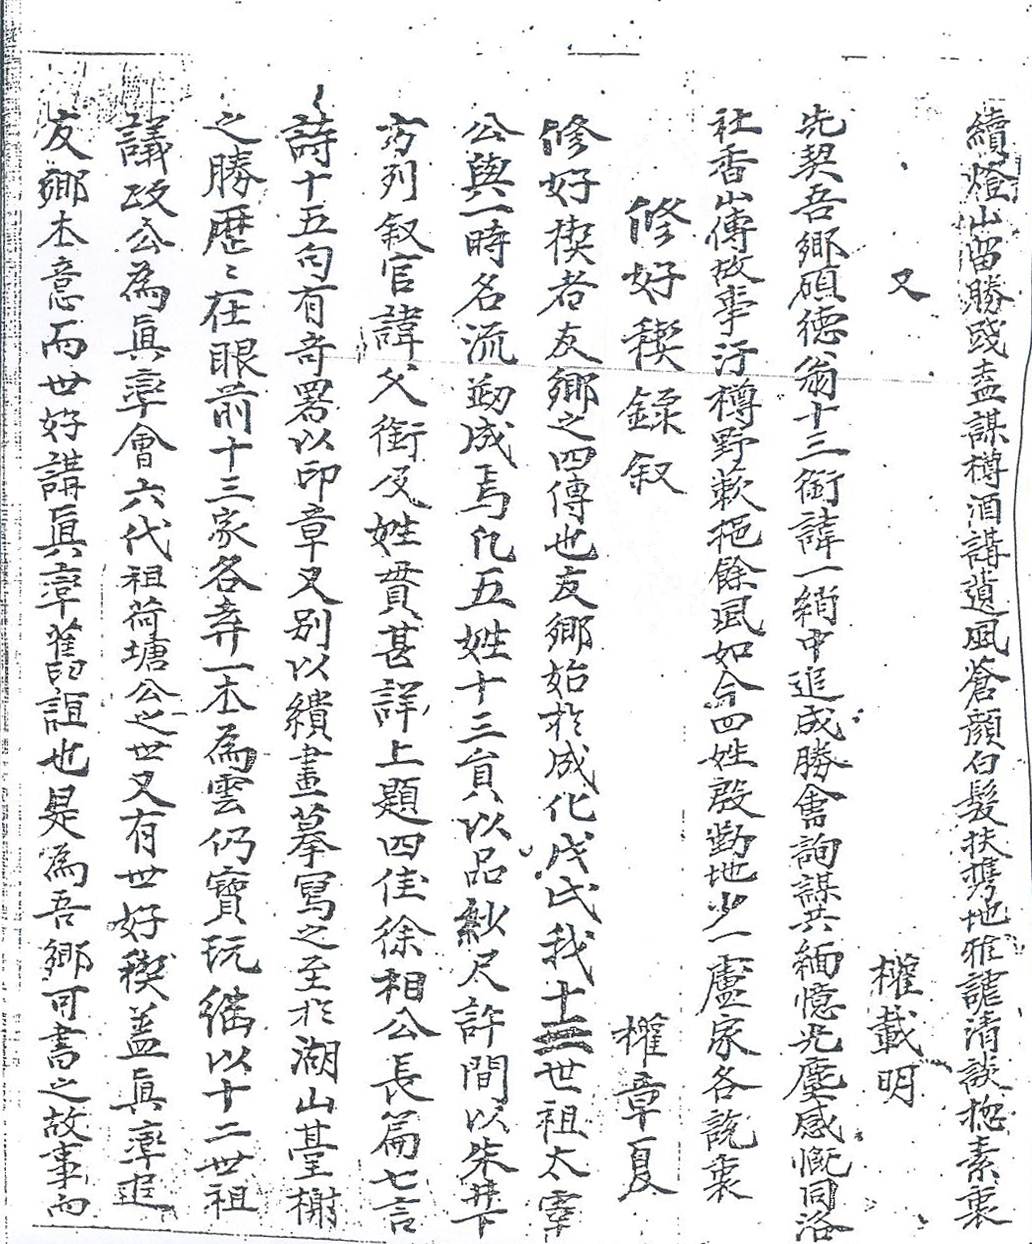 續燈山留勝踐盍謀樽酒講遺風蒼顔白髮扶携地雅謔清談摠素衷
又
權載明
先契吾鄉碩德翁十三銜諱一綃中追成勝會詢謀共緬憶光塵感慨同洛
社香山傳故事汙樽野蔌挹餘風如今四姓殷勤地少一盧家各說衷
修好稧錄叙
權章夏
修好稧者友鄉之四傳也友鄉始於成化戊戌我十三世祖太宰
公與一時名流刱成焉凡五姓十三員以品紗尺許間以朱井
方列叙官諱父銜及姓貫甚詳上題四佳徐相公長篇七言
詩十五句有奇署以印章又別以繢畫摹寫之至於湖山臺榭
之勝歷〻在眼前十三家各弆一本爲雲仍寶玩繼以十二世祖
議政公爲眞率會六代祖荷塘公之世又有世好稧盖眞率追
友鄉本意而世好講眞率舊誼也是爲吾鄉可書之故事而